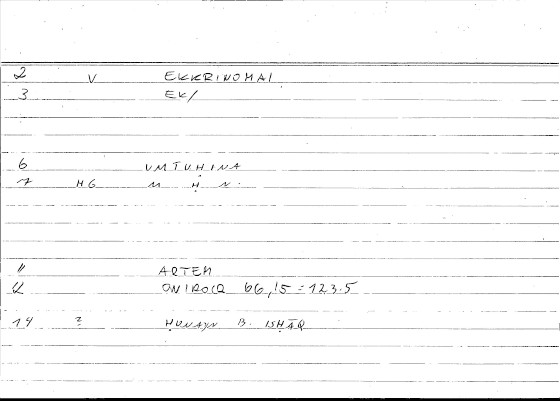 2 V EKKRINOMAI
3 EK/
6 UMTUḤINA
7 HG M Ḥ N.
11 ARTEM
12 ONIROCR 66,15 = 123.5
14 ? ḤUNAYN B. ISḤĀQ